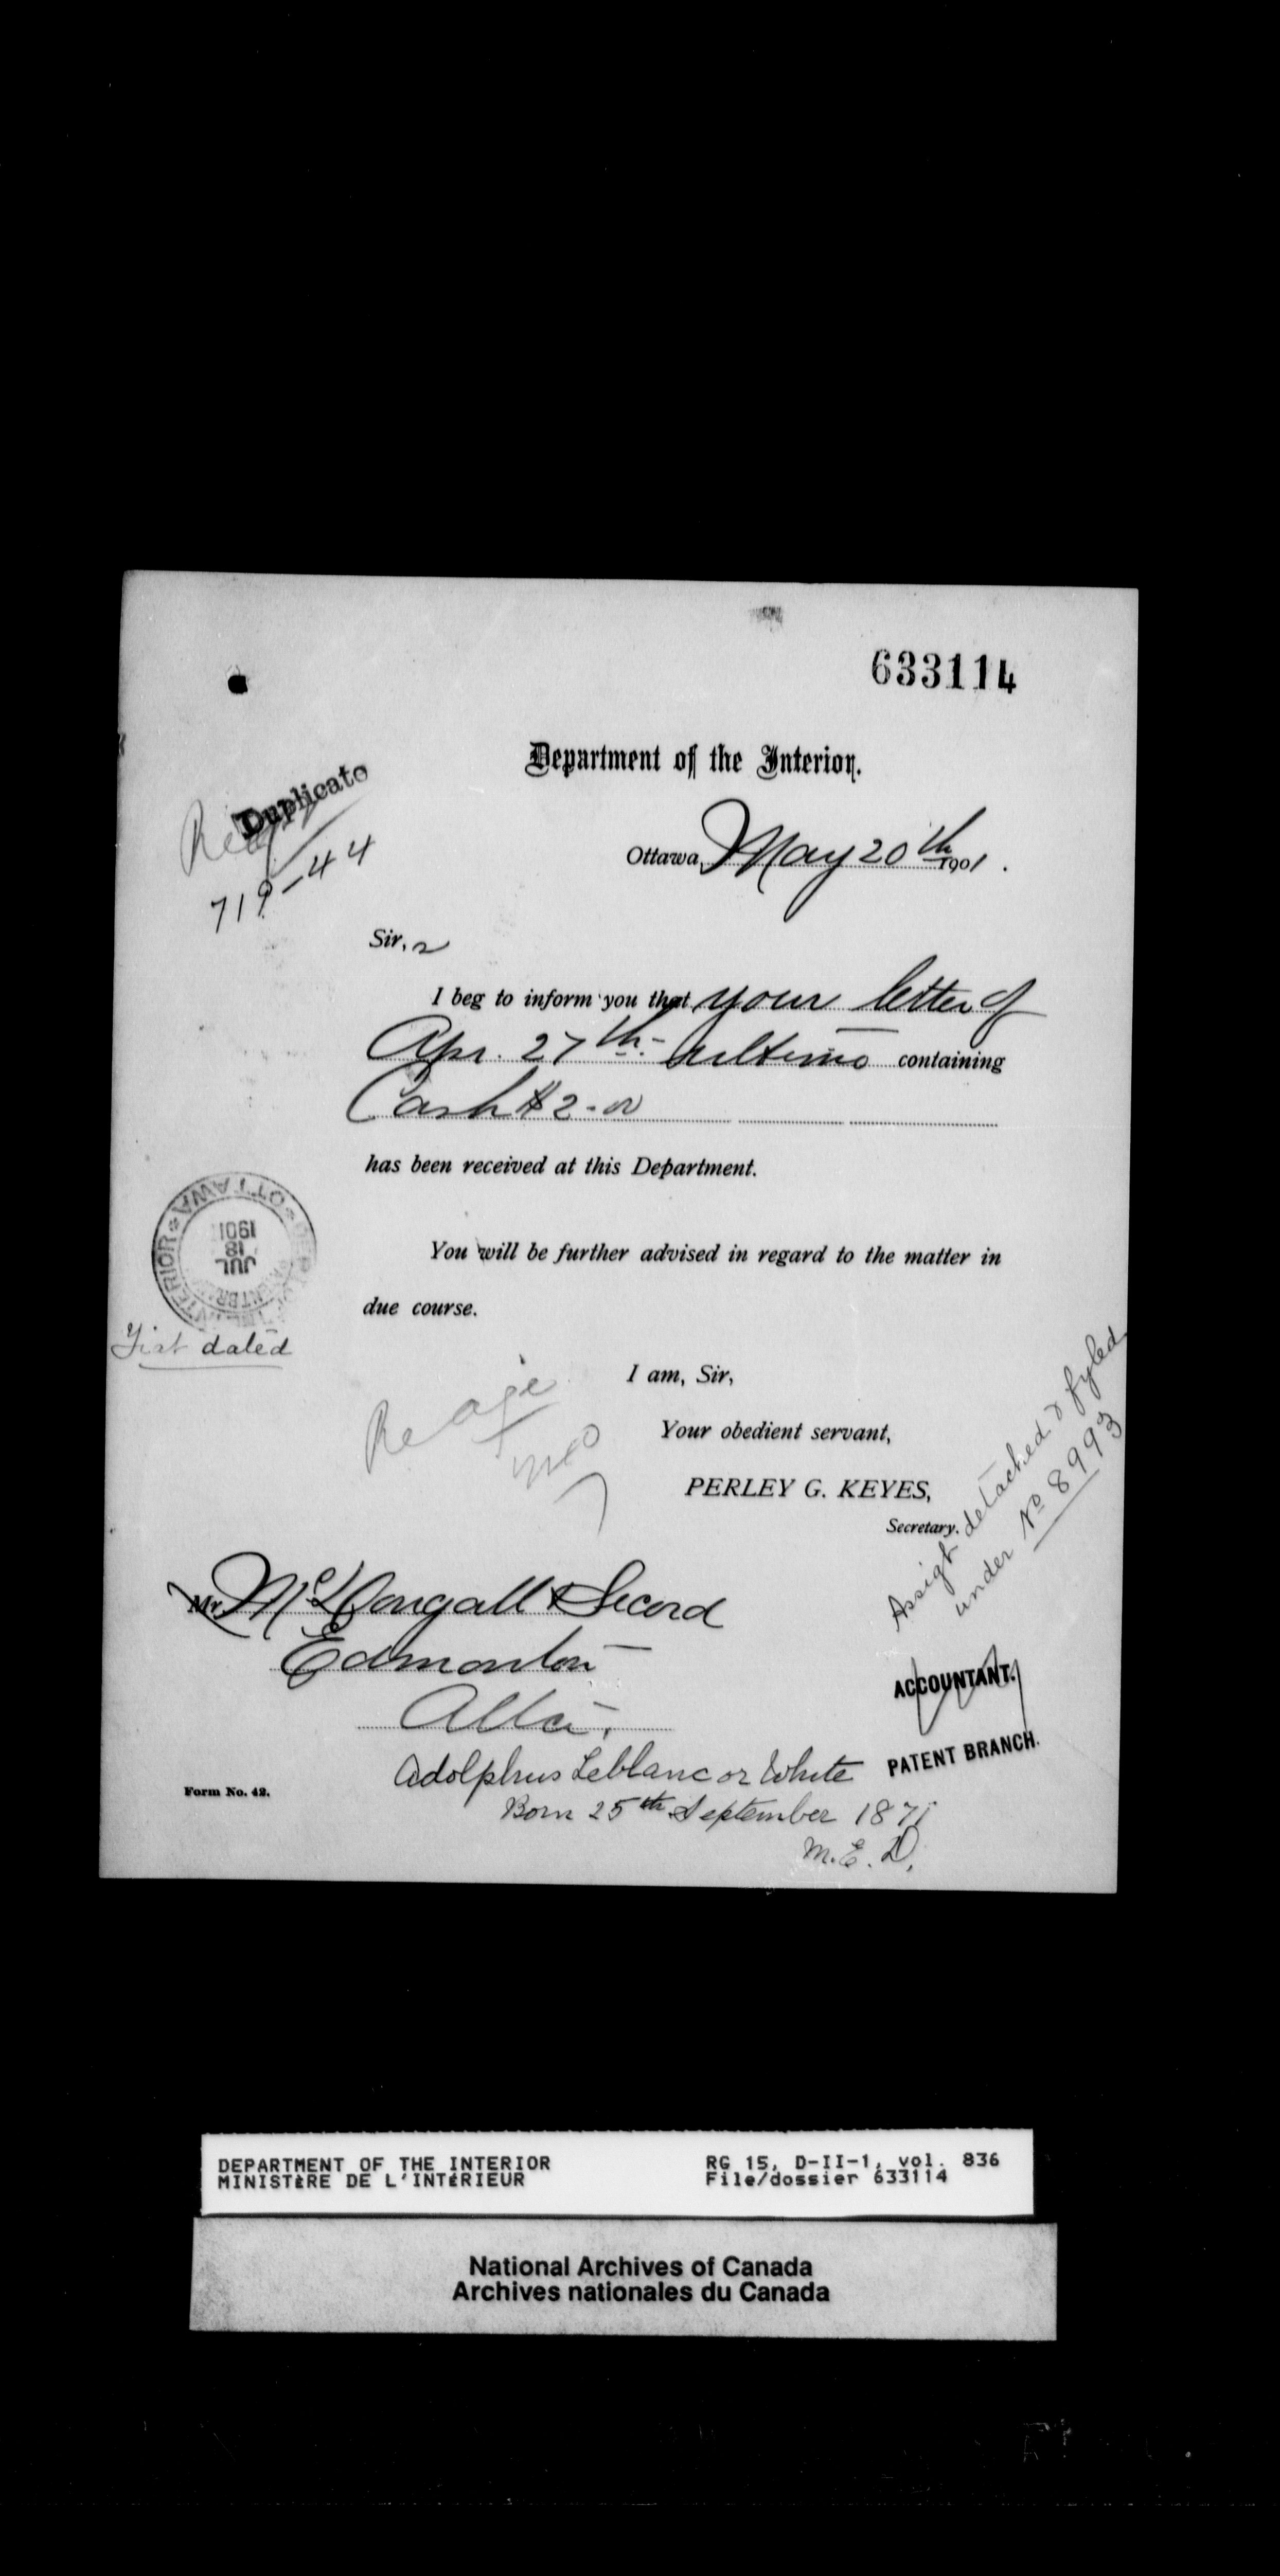 633114
Department of the Interior.
Duplicate
719-44
Ottawa, May 20th 1901.
Sir,
I beg to inform you that your letter of
Apr. 27th ultimo containing
Cash $2.00
has been received at this Department.
OTTAWA
JUL 18 1901
INTERIOR
You will be further advised in regard to the matter in
due course.
dated
I am, Sir,
Re age
Your obedient servant,
PERLEY G. KEYES,
Secretary.
Assigt detached & fyled
under No 8993
Mr. McDougall & Secord
Edmonton
Alta.
ACCOUNTANT.
PATENT BRANCH.
Adolphus Leblanc or White
Born 25th September 1871
M.E.D.
Form No. 42.
DEPARTMENT OF THE INTERIOR
MINISTÈRE DE L'INTÉRIEUR
RG 15, D-II-1, vol. 836
File/dossier 633114
National Archives of Canada
Archives nationales du Canada